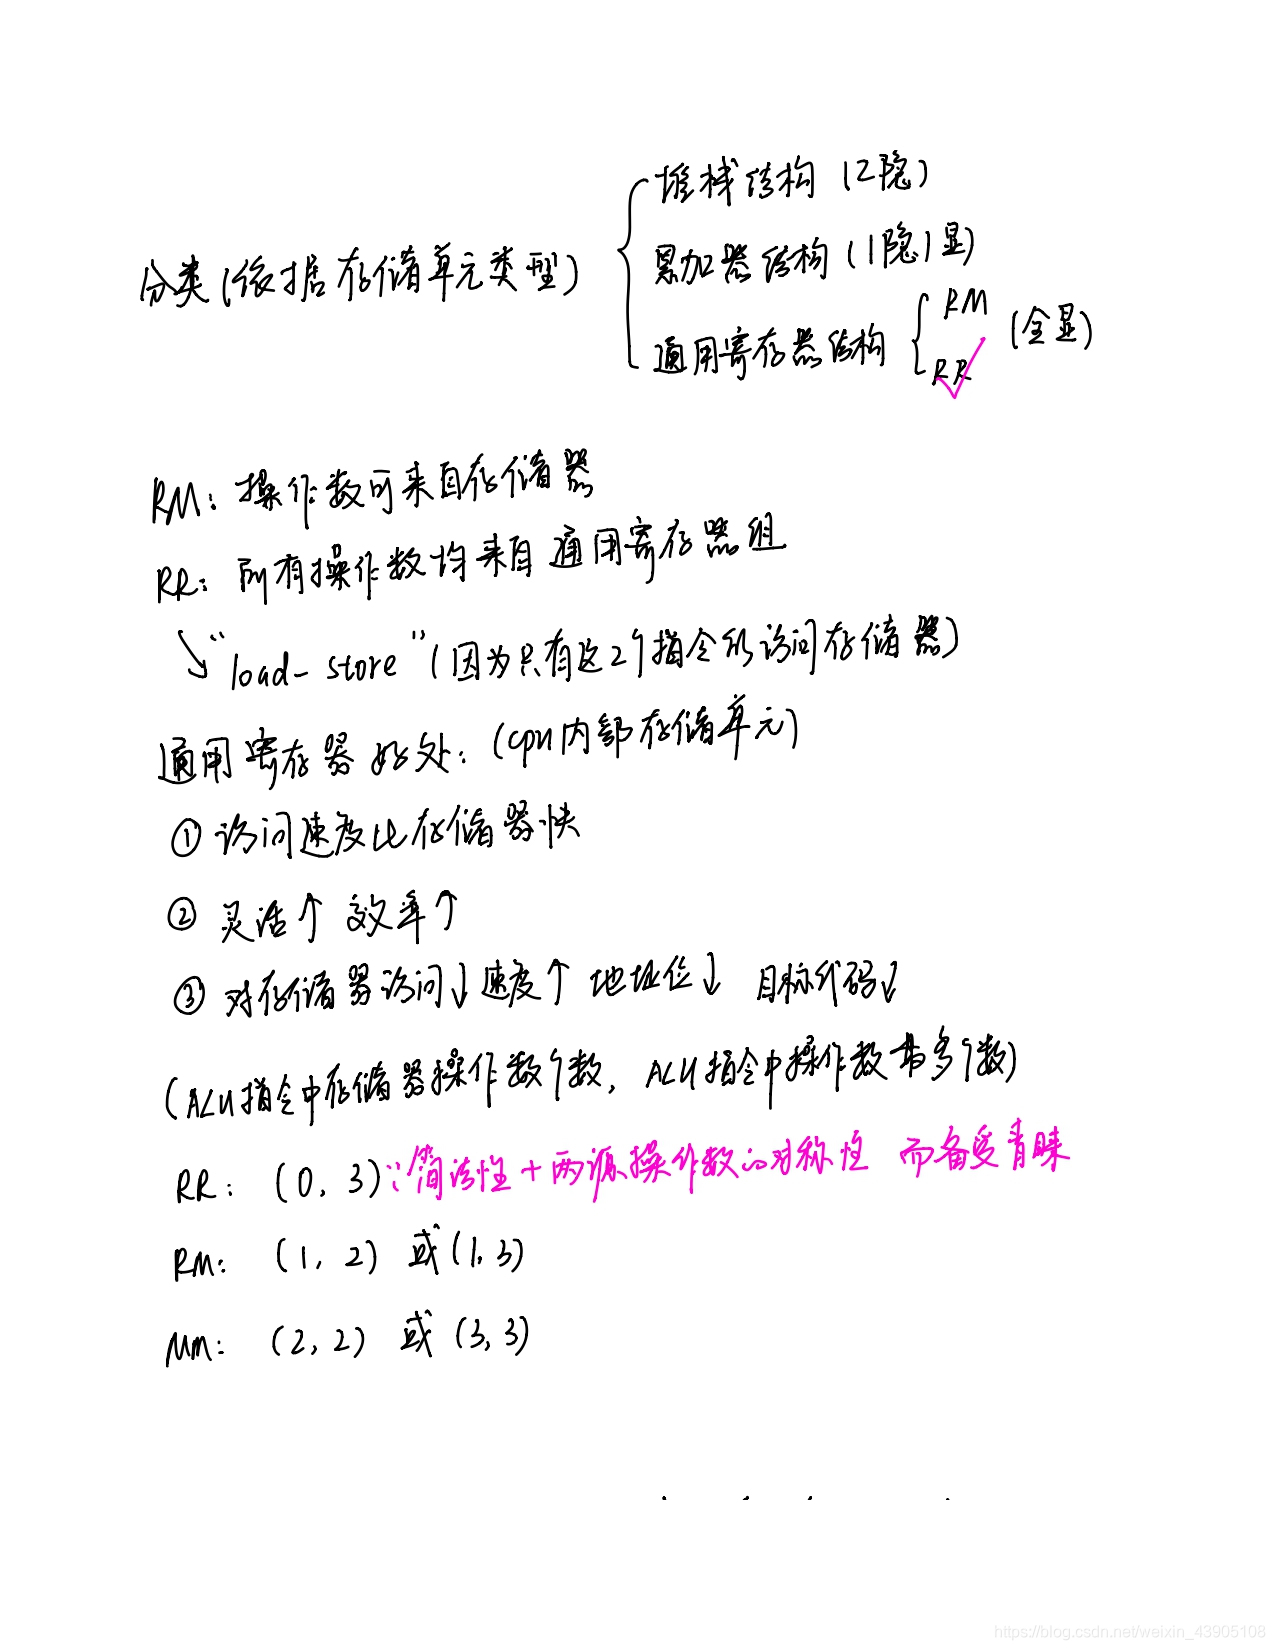 堆栈结构 (2隐)
累加器结构 (1隐1显)
分类(依据存储单元类型)
RM
通用寄存器结构
(全显)
RR
RM: 操作数可来自存储器
RR: 所有操作数均来自通用寄存器组
"load-store"(因为只有这2个指令能访问存储器)
通用寄存器好处: (cpu内部存储单元)
① 访问速度比存储器快
② 灵活↑ 效率↑
③ 对存储器访问↓ 速度↑ 地址位↓ 目标代码↓
(ALU指令中存储器操作数个数, ALU指令中操作数最多个数)
RR: (0, 3) ∵简洁性+两源操作数的对称性 而备受青睐
RM: (1, 2) 或 (1, 3)
MM: (2, 2) 或 (3, 3)
https://blog.csdn.net/weixin_43905108